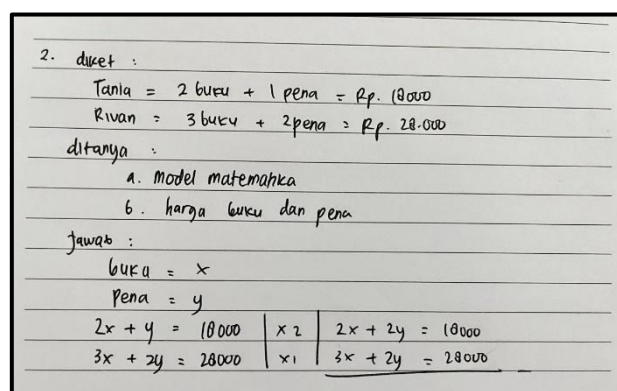 2. diket :
Tania = 2 buku + 1 pena = Rp. 18000
Rivan = 3 buku + 2 pena = Rp. 28.000
ditanya :
a. model matematika
b. harga buku dan pena
Jawab :
buku = x
Pena = y
2x + y = 18000 | x 2 | 2x + 2y = 18000
3x + 2y = 28000 | x 1 | 3x + 2y = 28000 –